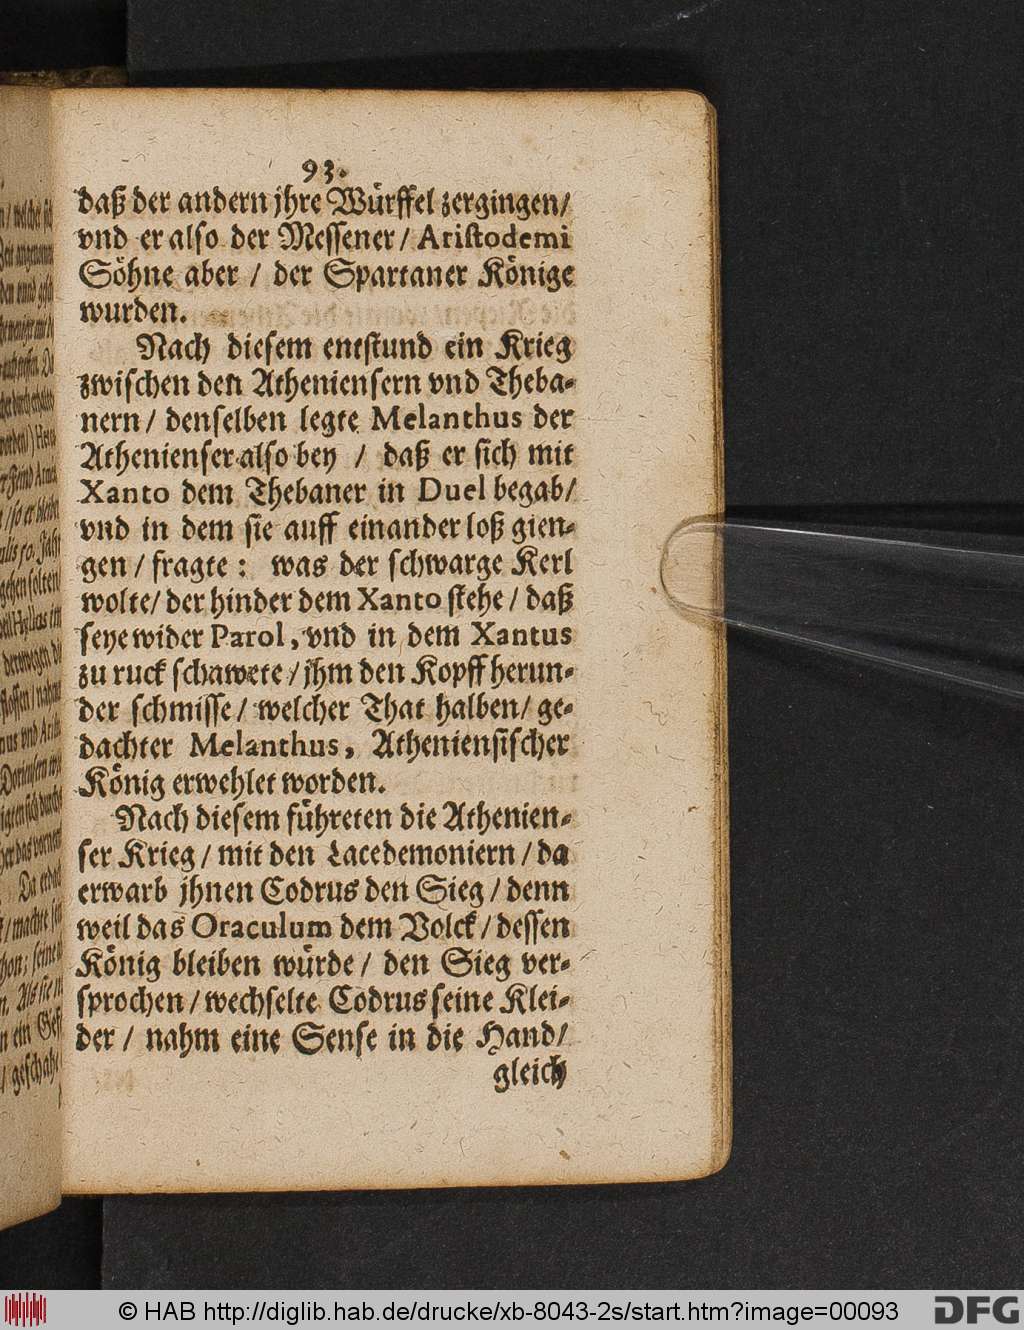 93.
daß der andern jhre Würffel zergingen/
vnd er also der Messener / Aristodemi
Söhne aber / der Spartaner Könige
wurden.
Nach diesem entstund ein Krieg
zwischen den Atheniensern vnd Theba-
nern / denselben legte Melanthus der
Athenienser also bey / daß er sich mit
Xanto dem Thebaner in Duel begab/
vnd in dem sie auff einander loß gien-
gen / fragte : was der schwarge Kerl
wolte/ der hinder dem Xanto stehe / daß
seye wider Parol, vnd in dem Xantus
zu ruck schawete / jhm den Kopff herun-
der schmisse / welcher That halben / ge-
dachter Melanthus, Atheniensischer
König erwehlet worden.
Nach diesem führeten die Athenien-
ser Krieg / mit den Lacedemoniern / da
erwarb jhnen Codrus den Sieg / denn
weil das Oraculum dem Volck / dessen
König bleiben würde / den Sieg ver-
sprochen / wechselte Codrus seine Klei-
der / nahm eine Sense in die Hand/
gleich
© HAB http://diglib.hab.de/drucke/xb-8043-2s/start.htm?image=00093
DFG